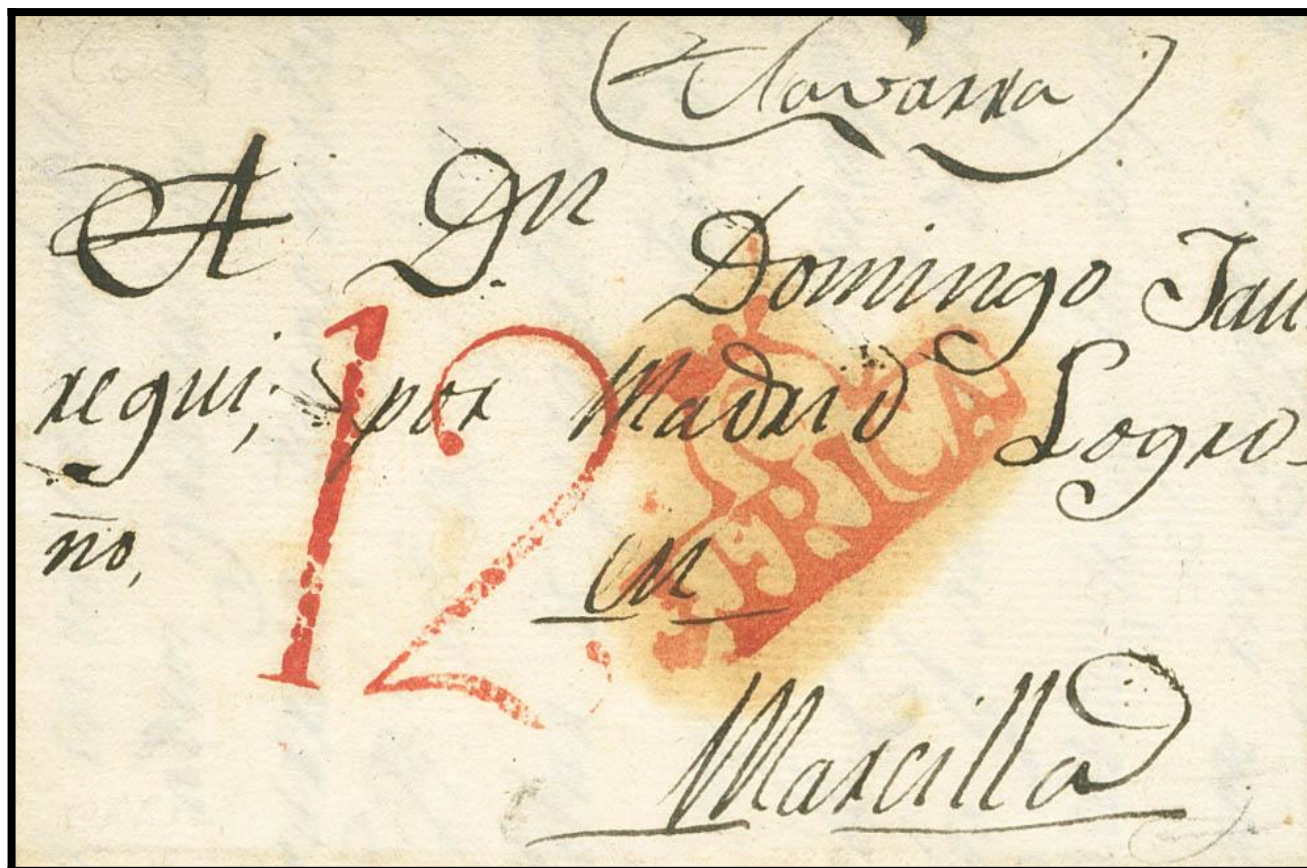 (Navarra)
A Dn. Domingo Jau
regui, por Madrid Logro-
ño,
12
en
Marcilla